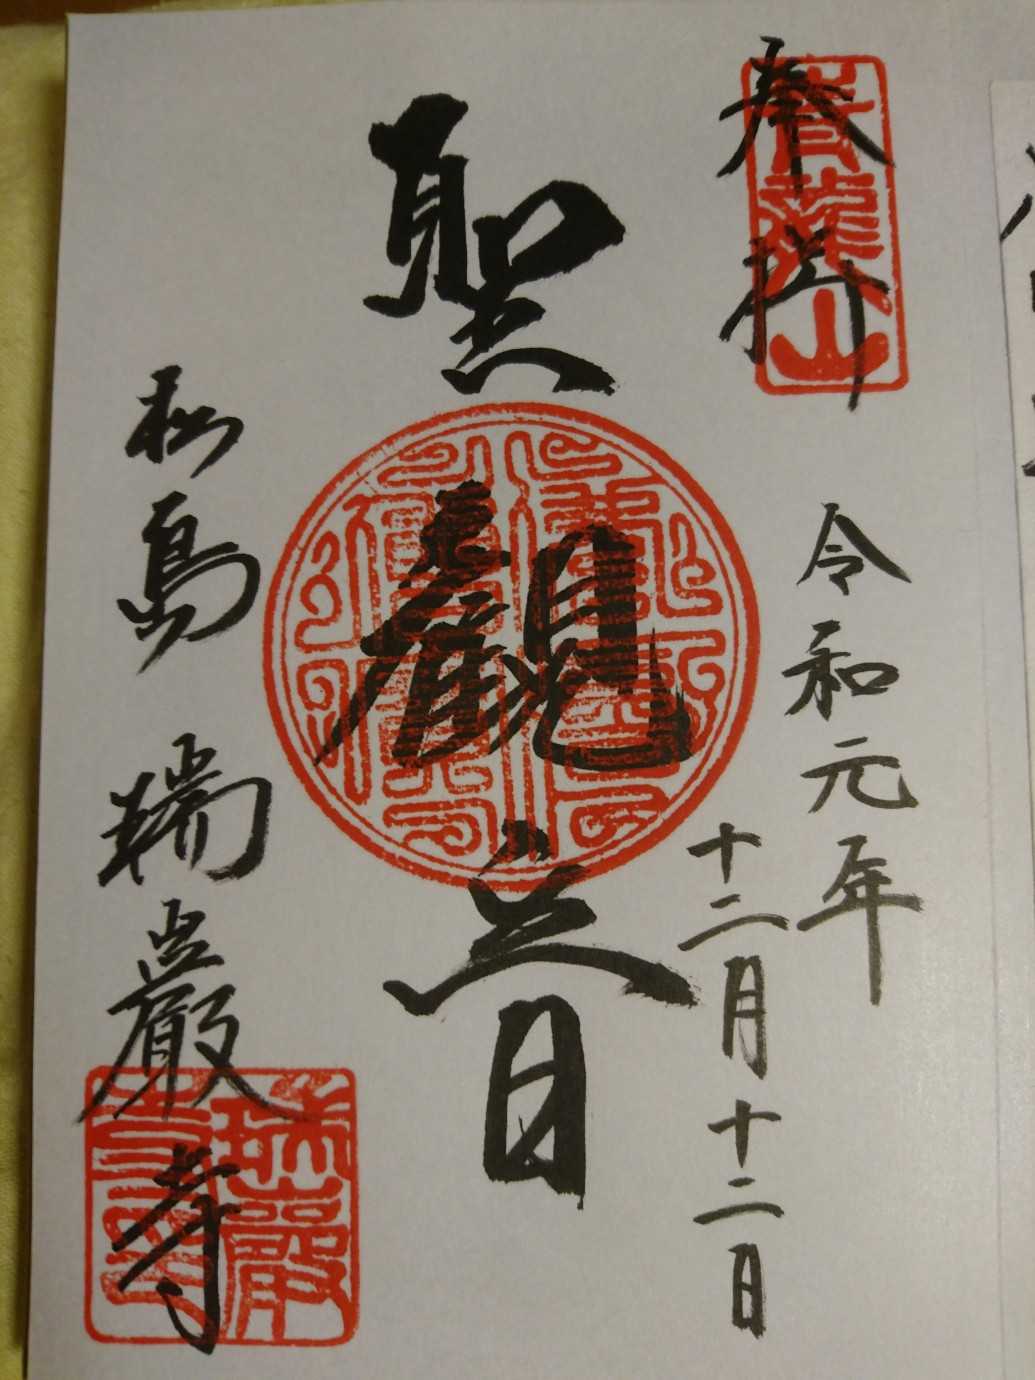 奉拝
青龍山
令和元年
十二月十二日
聖觀音
松島 瑞巌寺
瑞巌寺印